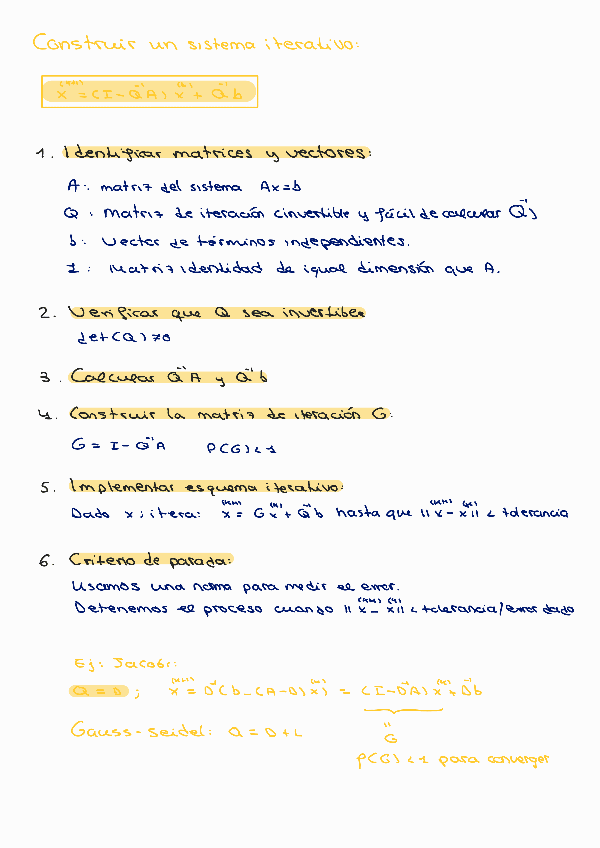 Construir un sistema iterativo:
x^(k+1) = (I-Q^-1A) x^(k) + Q^-1b
1. Identificar matrices y vectores:
A: matriz del sistema Ax=b
Q: Matriz de iteración (invertible y fácil de calcular Q^-1)
b: Vector de términos independientes.
I: Matriz identidad de igual dimensión que A.
2. Verificar que Q sea invertible
det(Q)≠0
3. Calcular Q^-1A y Q^-1b
4. Construir la matriz de iteración G:
G = I-Q^-1A ρ(G)<1
5. Implementar esquema iterativo:
Dado x; itera: x^(k+1) = Gx^(k) + Q^-1b hasta que ||x^(k+1) - x^(k)|| < tolerancia
6. Criterio de parada:
Usamos una norma para medir el error.
Detenemos el proceso cuando ||x^(k+1) - x^(k)|| < tolerancia/error dado
Ej: Jacobi:
Q = D ; x^(k+1) = D^-1(b-(A-D)x^(k)) = (I-D^-1A)x^(k) + D^-1b
Gauss-Seidel: Q = D+L
"
G
ρ(G)<1 para converger